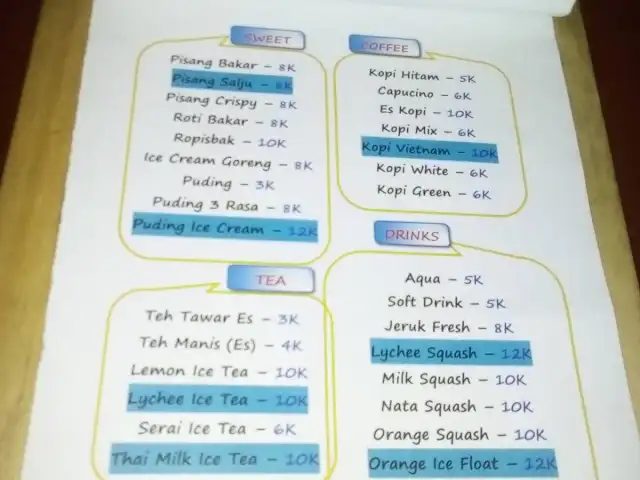 SWEET
Pisang Bakar – 8K
Pisang Salju – 8K
Pisang Crispy – 8K
Roti Bakar – 8K
Ropisbak – 10K
Ice Cream Goreng – 8K
Puding – 3K
Puding 3 Rasa – 8K
Puding Ice Cream – 12K
COFFEE
Kopi Hitam – 5K
Capucino – 6K
Es Kopi – 10K
Kopi Mix – 6K
Kopi Vietnam – 10K
Kopi White – 6K
Kopi Green – 6K
TEA
Teh Tawar Es – 3K
Teh Manis (Es) – 4K
Lemon Ice Tea – 10K
Lychee Ice Tea – 10K
Serai Ice Tea – 6K
Thai Milk Ice Tea – 10K
DRINKS
Aqua – 5K
Soft Drink – 5K
Jeruk Fresh – 8K
Lychee Squash – 12K
Milk Squash – 10K
Nata Squash – 10K
Orange Squash – 10K
Orange Ice Float – 12K